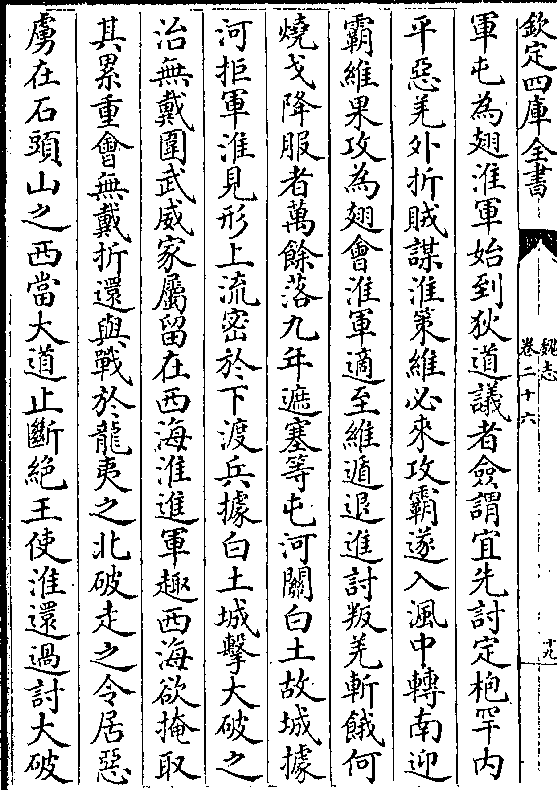 欽定四庫全書
魏志
卷二十六
十九
軍屯為翅淮軍始到狄道議者僉謂宜先討定枹罕内
平惡羌外折賊謀淮策維必來攻霸遂入渢中轉南迎
霸維果攻為翅會淮軍適至維遁退進討叛羌斬餓何
燒戈降服者萬餘落九年遮塞等屯河關白土故城據
河拒軍淮見形上流宻於下渡兵據白土城擊大破之
治無戴圍武威家屬留在西海淮進軍趣西海欲掩取
其累重㑹無戴折還與戰於龍夷之北破走之令居惡
虜在石頭山之西當大道止斷絶王使淮還過討大破